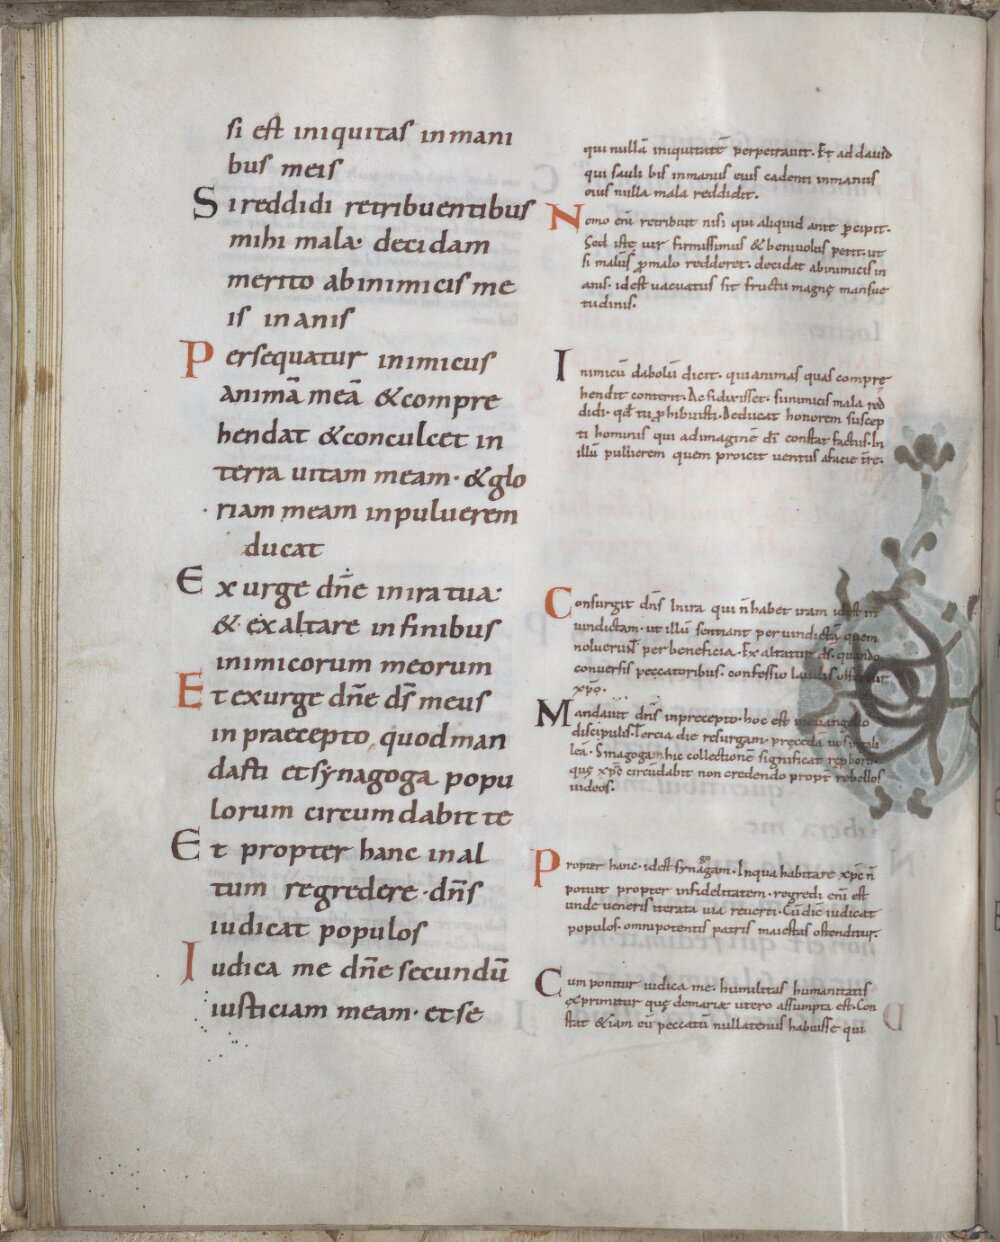 si est iniquitas in mani
bus meis
Si reddidi retribuentibus
mihi mala· decidam
merito ab inimicis me
is inanis
Persequatur inimicus
animā meā & compre
hendat & conculcet in
terra uitam meam· & glo
riam meam in puluerem
ducat
Exurge dñe in ira tua·
& exaltare in finibus
inimicorum meorum
Et exurge dñe ds̄ meus
in praecepto quod man
dasti et synagoga popu
lorum circumdabit te
Et propter hanc in al
tum regredere· dñs
iudicat populos
Iudica me dñe secundū
iusticiam meam· et se
qui nullā iniquitatē perpetrauit· Et ad dauid
qui sauli bis in manus eius cadenti in manus
eius nulla mala reddidit·
Nemo enī retribuit nisi qui aliquid ante p̄cipit·
Sed iste uir firmissimus & beniuolus petit· ut
si malus p malo redderet· decidat ab inimicis in
anis· id est uacuatus sit fructu magnę mansue
tudinis·
Inimicū dabolū dicit· qui animas quas compre
hendit conterit· Ac si dixisset· si inimicis mala red
didi· qd tu prohibuisti· Deducat honorem suscep
ti hominis qui ad imaginē dī constat factus· In
illū puluerem quem proicit uentus a facie tr̄e·
Consurgit dñs In ira qui ñ habet iram id est in
uindictam· ut illū sentiant per uindictā quem
noluerunt per beneficia· Exaltatur ds̄· quando
conuersis peccatoribus· confessio laudis offertur
xp̄o·
Mandauit dñs in precepto· hoc est in euangelio
discipulis· Tercia die resurgam· precedā uos in gali
leā· Sinagogam hic collectionē significat
quę xp̄ē circūdabit non credendo propt rebellos
iudeos·
Propter hanc· id est synagogam· In qua habitare xp̄c ñ
potuit propter infidelitatem· regredi enī est
unde ueneris iterata uia reuerti· Cū dīc iudicat
populos· omnipotentis patris maiestas ostenditur·
Cum ponitur iudica me· humilitas humanitatis
exprimitur quę de mariæ utero assumpta est· Con
stat & iam eū peccatū nullatenus habuisse qui